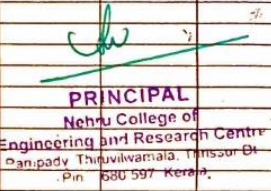 PRINCIPAL
Nehru College of
Engineering and Research Centre
Pampady Thiruvilwamala, Thrissur Dt
Pin 680 597 Kerala.